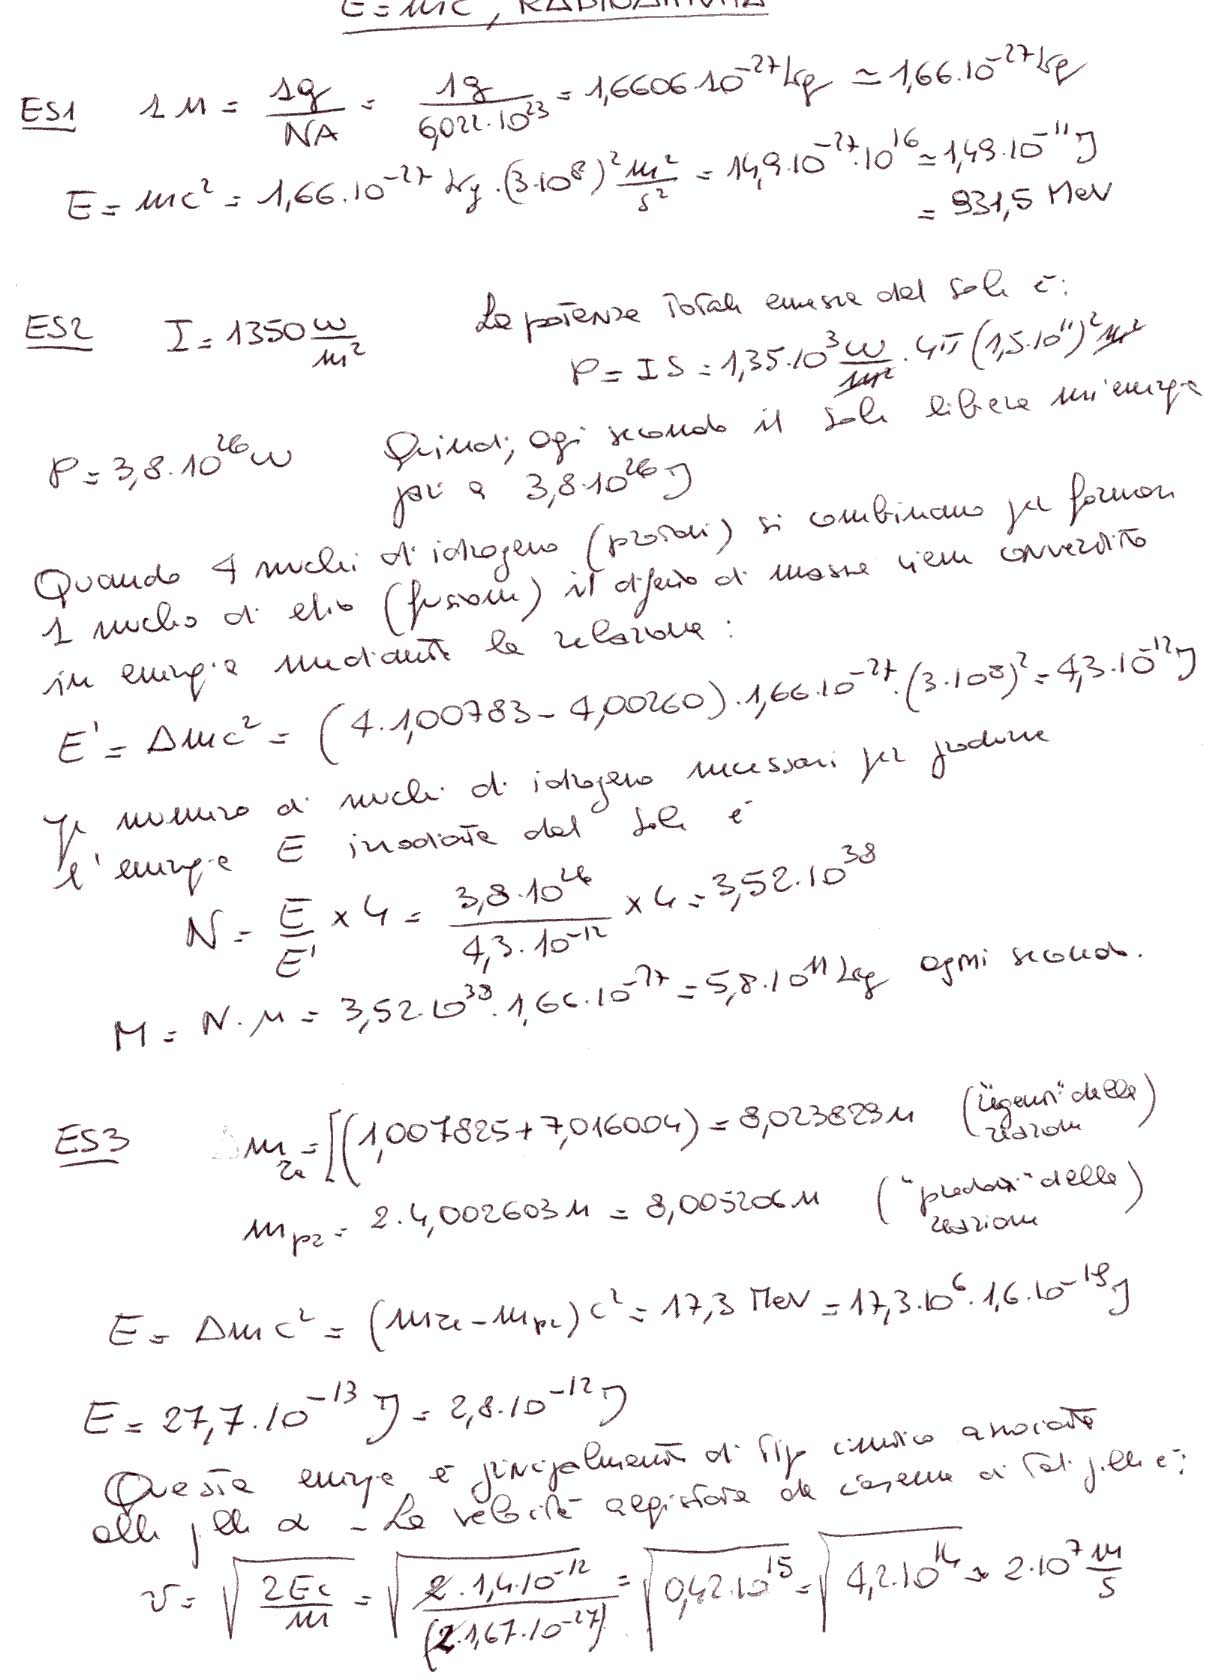 E=mc², RADIOATTIVITÀ
ES1 1 u = 1g/NA = 1g/6,022·10²³ = 1,6606·10⁻²⁷kg ≃ 1,66·10⁻²⁷kg
E = mc² = 1,66·10⁻²⁷ kg·(3·10⁸)² m²/s² = 14,9·10⁻²⁷·10¹⁶ ≃ 1,49·10⁻¹¹J
= 931,5 MeV
ES2 I = 1350 W/m² La potenza totale emessa dal sole è:
P = IS = 1,35·10³ W/m² · 4π(1,5·10¹¹)² m²
P = 3,8·10²⁶ W Quindi, ogi secondo il sole libera un'energia
pari a 3,8·10²⁶J
Quando 4 nuclei di idrogeno (protoni) si combinano per formare
1 nucleo di elio (fusione) il difetto di massa viene convertito
in energia mediante la relazione:
E' = Δmc² = (4·1,00783 - 4,00260)·1,66·10⁻²⁷·(3·10⁸)² = 4,3·10⁻¹²J
Il numero di nuclei di idrogeno necessari per produrre
l'energia E irradiata dal sole è
N = E/E' × 4 = 3,8·10²⁶/4,3·10⁻¹² × 4 = 3,52·10³⁸
M = N·u = 3,52·10³⁸·1,66·10⁻²⁷ = 5,8·10¹¹ kg ogni secondo.
ES3 m re = [(1,007825+7,016004) = 8,023829u ("reagenti" della reazione)
m pr = 2·4,002603u = 8,005206u ("prodotti" della reazione)
E = Δmc² = (m re - m pr)c² = 17,3 MeV = 17,3·10⁶·1,6·10⁻¹⁹J
E = 27,7·10⁻¹³ J = 2,8·10⁻¹²J
Questa energia è principalmente di tipo cinetico associata
alle plle α - La velocità acquistata da ciascuna di tali plle è:
v = √(2Ec/m) = √(2·1,4·10⁻¹²/(2·1,67·10⁻²⁷)) = √(0,42·10¹⁵) = √(4,2·10¹⁴) ≃ 2·10⁷ m/s